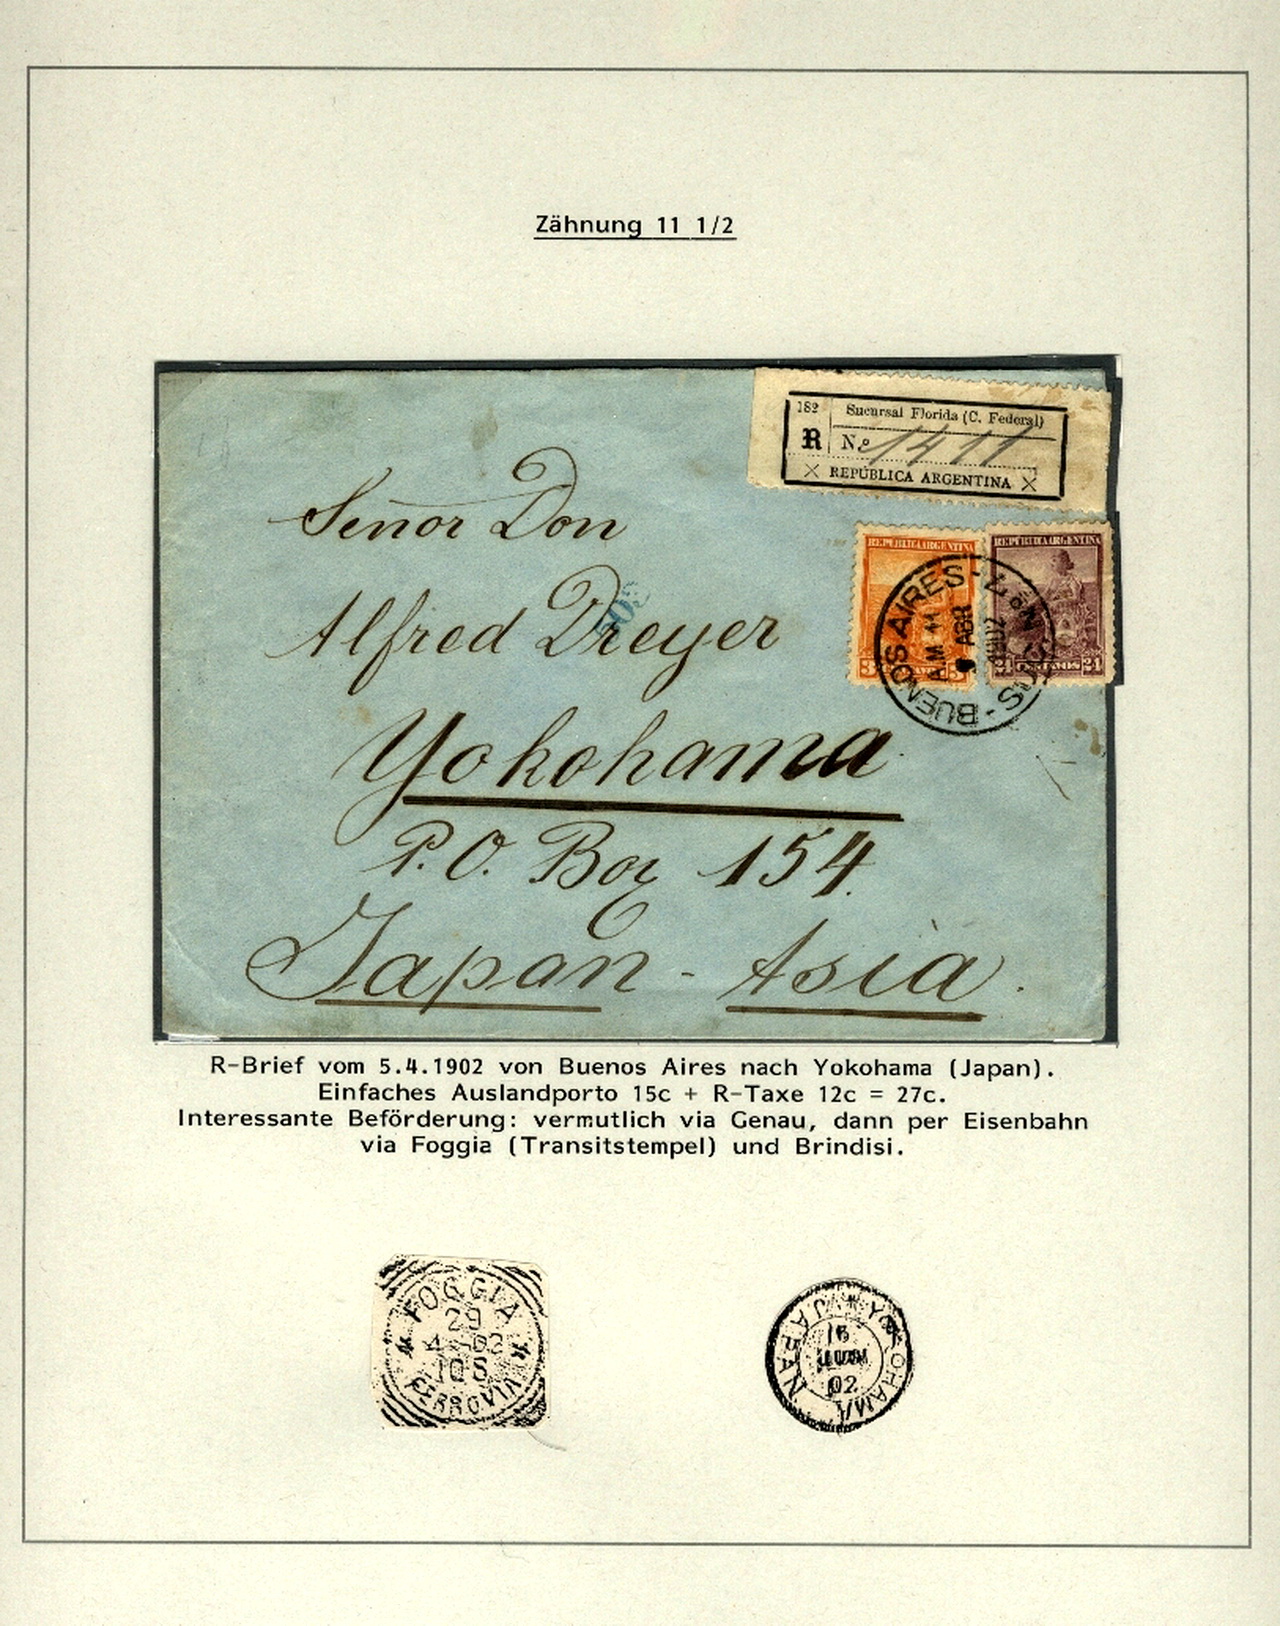 Zähnung 11 1/2
182
Sucursal Florida (C. Federal)
R
No 1411
REPÚBLICA ARGENTINA
Señor Don
Alfred Dreyer
Yokohama
P.O. Box 154.
Japan - Asia.
REPUBLICA ARGENTINA
REPUBLICA ARGENTINA
24 CENTAVOS 24
BUENOS AIRES
A.M 11
ABR
1902
R-Brief vom 5.4.1902 von Buenos Aires nach Yokohama (Japan).
Einfaches Auslandporto 15c + R-Taxe 12c = 27c.
Interessante Beförderung: vermutlich via Genau, dann per Eisenbahn
via Foggia (Transitstempel) und Brindisi.
FOGGIA
29
4-02
10 S
FERROVIA
YOKOHAMA
JAPAN
16
JUN
02